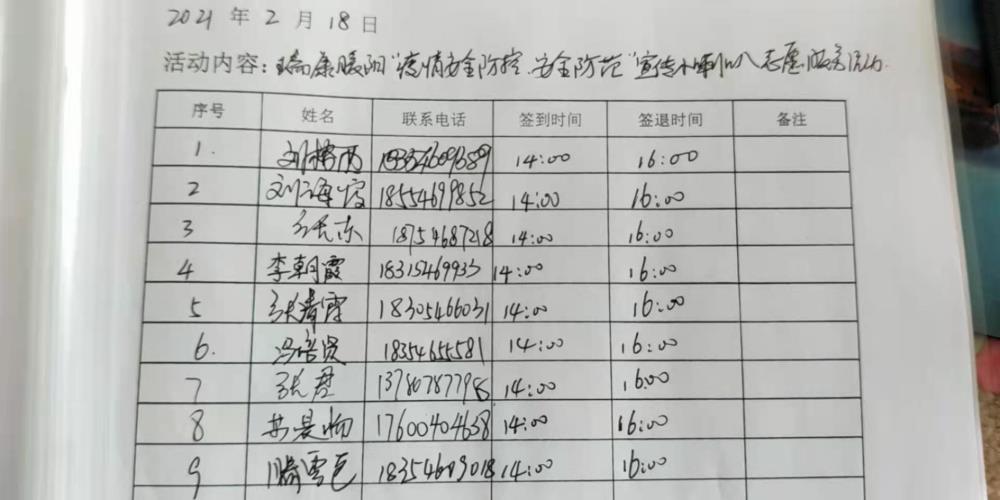 2021 年 2 月 18 日
活动内容：瑞康暖阳“疫情安全防控、安全防范”宣传小喇叭志愿服务活动
序号 姓名 联系电话 签到时间 签退时间 备注
1. 刘 14:00 16:00
2 刘海霞 18554699852 14:00 16:00
3 张东 18754687218 14:00 16:00
4 李朝霞 18315469935 14:00 16:00
5 张清霞 18305466031 14:00 16:00
6. 冯培贤 18354655581 14:00 16:00
7 张君 13780787798 14:00 16:00
8 17600404638 14:00 16:00
9 18354609018 14:00 16:00